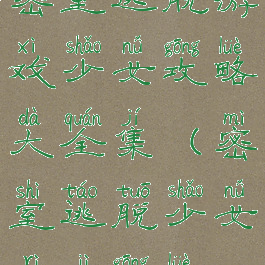 密室逃脱游
xì shǎo nǚ gōng lüè
戏少女攻略
dà quán jí mì
大全集（密
shì táo tuō shǎo nǚ
室逃脱少女
rì jì gōng lüè